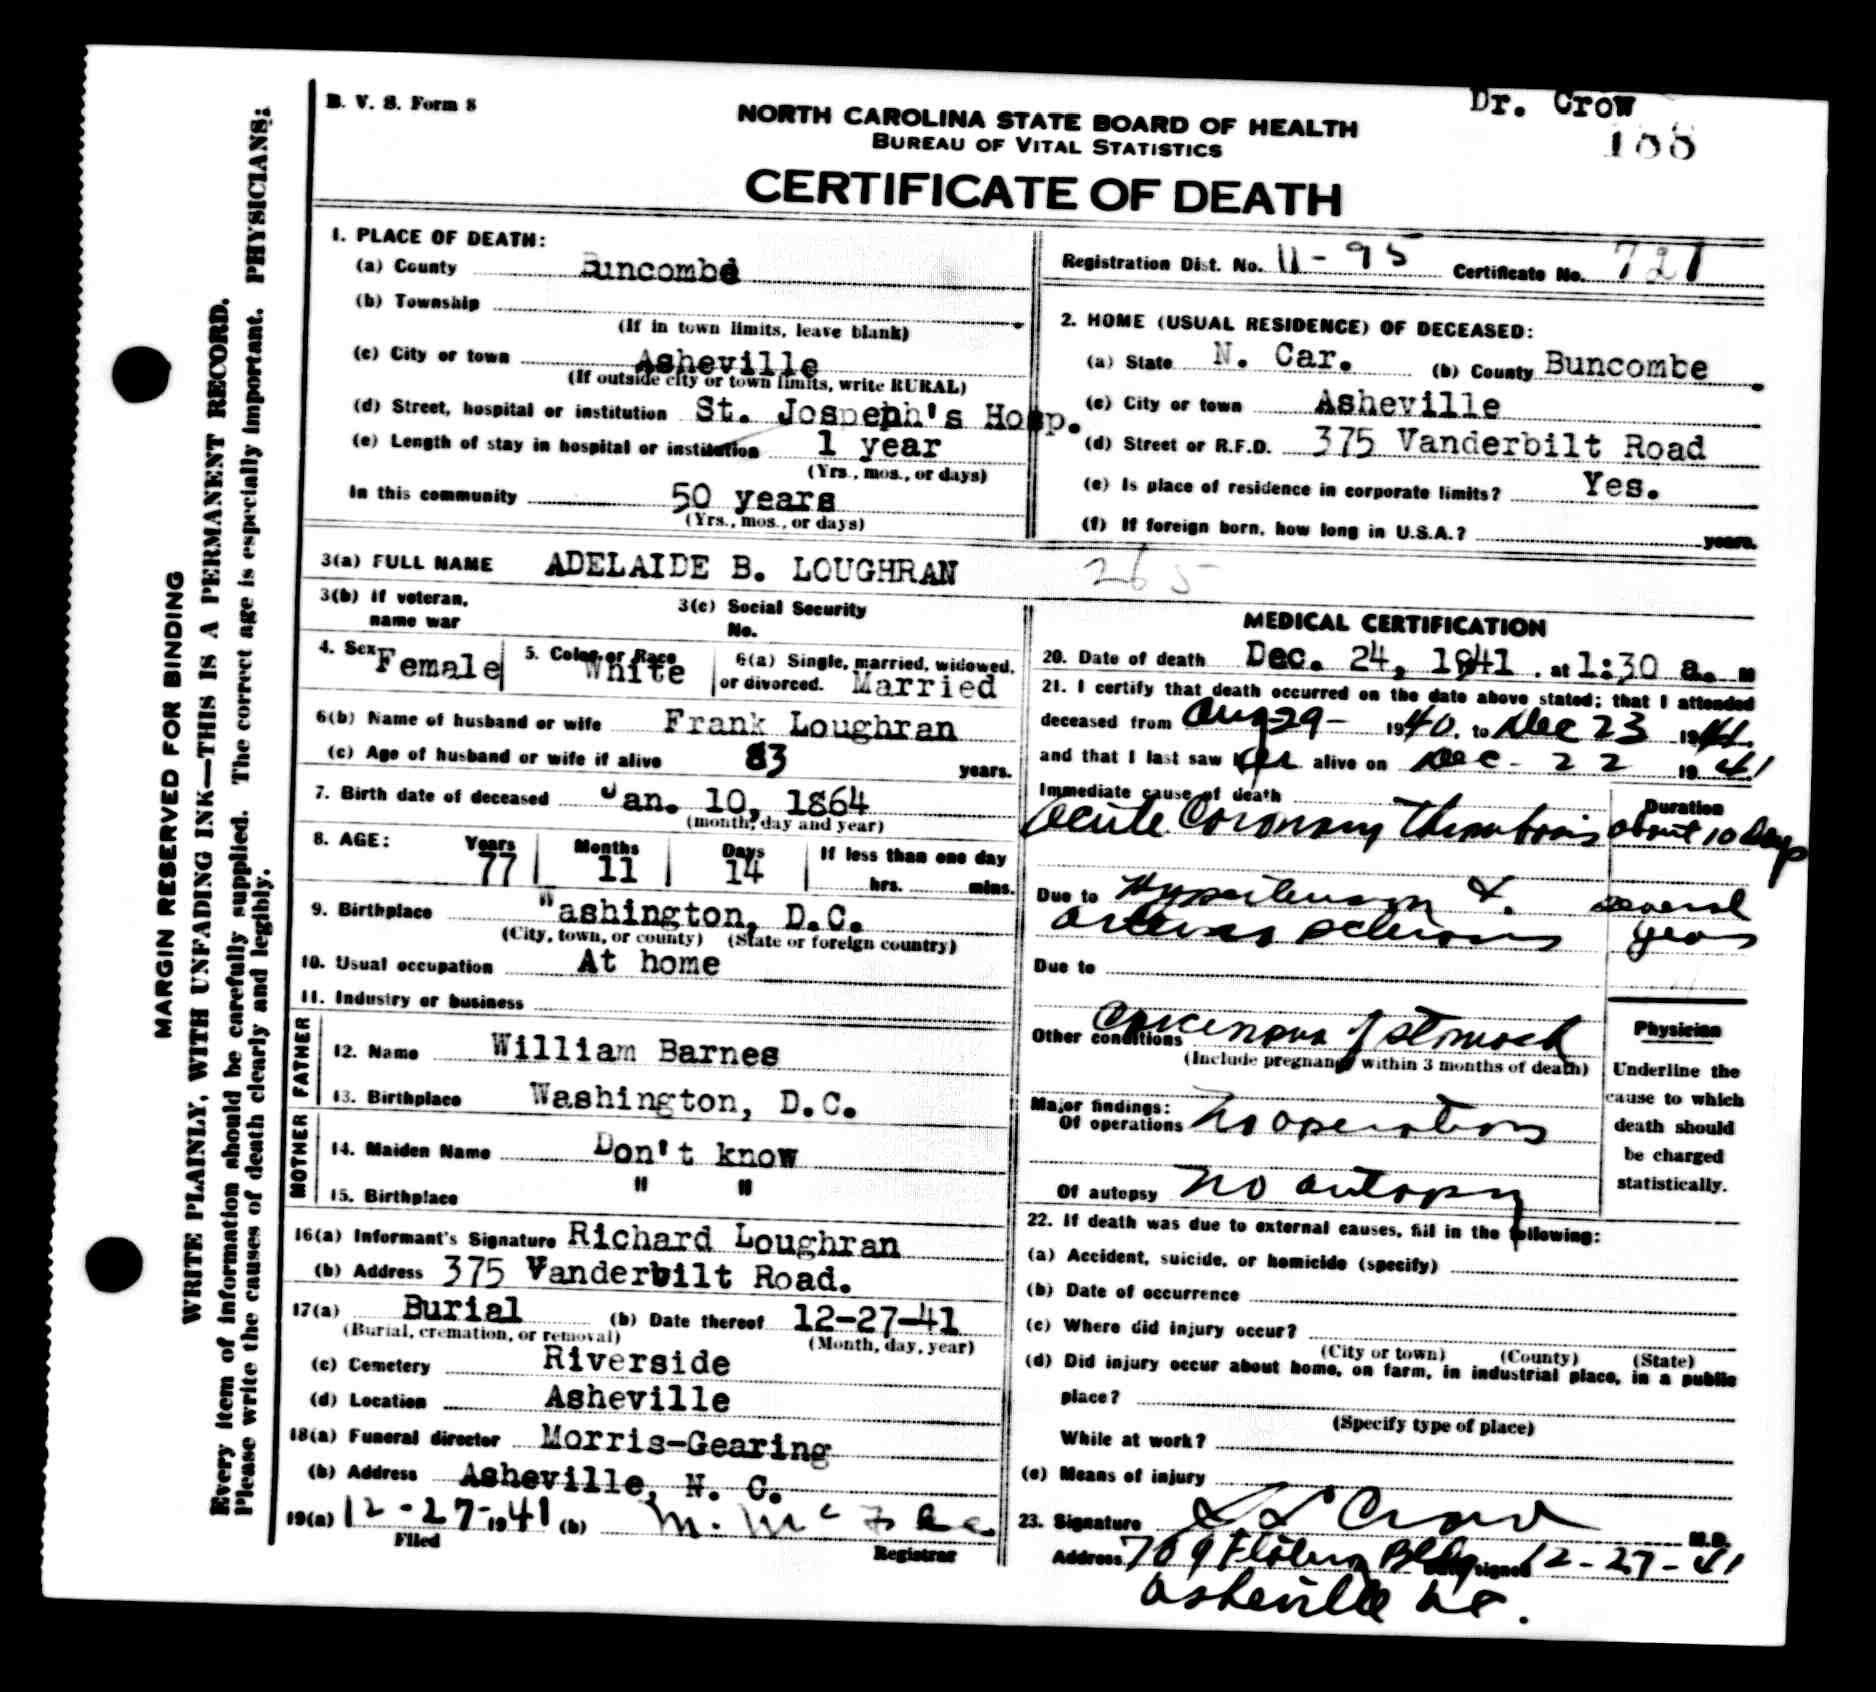 B. V. S. Form 8
Dr. Crow
188
NORTH CAROLINA STATE BOARD OF HEALTH
BUREAU OF VITAL STATISTICS
CERTIFICATE OF DEATH
MARGIN RESERVED FOR BINDING
WRITE PLAINLY, WITH UNFADING INK—THIS IS A PERMANENT RECORD.
Every item of information should be carefully supplied. The correct age is especially important. PHYSICIANS:
Please write the causes of death clearly and legibly.
1. PLACE OF DEATH:
(a) County Buncombe
(b) Township
(If in town limits, leave blank)
(c) City or town Asheville
(If outside city or town limits, write RURAL)
(d) Street, hospital or institution St. Jospeph's Hosp.
(e) Length of stay in hospital or institution 1 year
(Yrs., mos., or days)
In this community 50 years
(Yrs., mos., or days)
Registration Dist. No. 11-95 Certificate No. 721
2. HOME (USUAL RESIDENCE) OF DECEASED:
(a) State N. Car. (b) County Buncombe
(c) City or town Asheville
(d) Street or R.F.D. 375 Vanderbilt Road
(e) Is place of residence in corporate limits? Yes.
(f) If foreign born, how long in U.S.A.? years.
3(a) FULL NAME ADELAIDE B. LOUGHRAN 265
3(b) If veteran, name war
3(c) Social Security No.
4. Sex Female 5. Color or Race White 6(a) Single, married, widowed, or divorced. Married
6(b) Name of husband or wife Frank Loughran
(c) Age of husband or wife if alive 83 years.
7. Birth date of deceased Jan. 10, 1864
(month, day and year)
8. AGE: Years Months Days If less than one day
77 11 14 hrs. mins.
9. Birthplace Washington, D.C.
(City, town, or county) (State or foreign country)
10. Usual occupation At home
11. Industry or business
FATHER
12. Name William Barnes
13. Birthplace Washington, D.C.
MOTHER
14. Maiden Name Don't know
15. Birthplace " "
16(a) Informant's Signature Richard Loughran
(b) Address 375 Vanderbilt Road.
17(a) Burial (b) Date thereof 12-27-41
(Burial, cremation, or removal) (Month, day, year)
(c) Cemetery Riverside
(d) Location Asheville
18(a) Funeral director Morris-Gearing
(b) Address Asheville, N. C.
19(a) 12-27-1941 (b) M. Mc
Filed Registrar
MEDICAL CERTIFICATION
20. Date of death Dec. 24, 1941 . at 1:30 a. M
21. I certify that death occurred on the date above stated; that I attended
deceased from Aug 29- 1940. to Dec 23 1941.
and that I last saw her alive on Dec - 22 1941
Immediate cause of death Duration
Acute Coronary Thrombosis about 10 Days
Due to Hypertension & several
arterio sclerosis years
Due to
Other conditions Carcinoma of stomach
(Include pregnancy within 3 months of death)
Major findings:
Of operations No operations
Of autopsy No autopsy
Physician
Underline the
cause to which
death should
be charged
statistically.
22. If death was due to external causes, fill in the following:
(a) Accident, suicide, or homicide (specify)
(b) Date of occurrence
(c) Where did injury occur?
(City or town) (County) (State)
(d) Did injury occur about home, on farm, in industrial place, in a public
place?
(Specify type of place)
While at work?
(e) Means of injury
23. Signature S L Crow M.D.
Address 709 Flatiron Bldg Date signed 12-27-41
Asheville N.C.